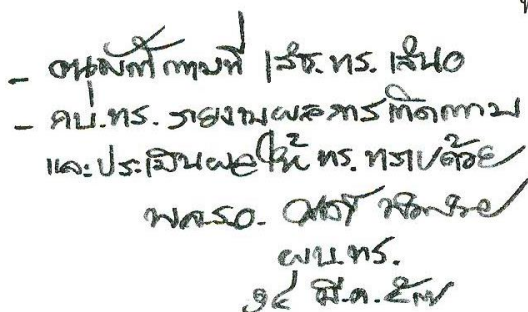 - อนุมัติตามที่ เสธ.ทร. เสนอ
- คบ.ทร. รายงานผลการติดตาม
และประเมินผลให้ ทร. ทราบด้วย
พล.ร.อ.
ผบ.ทร.
มี.ค.